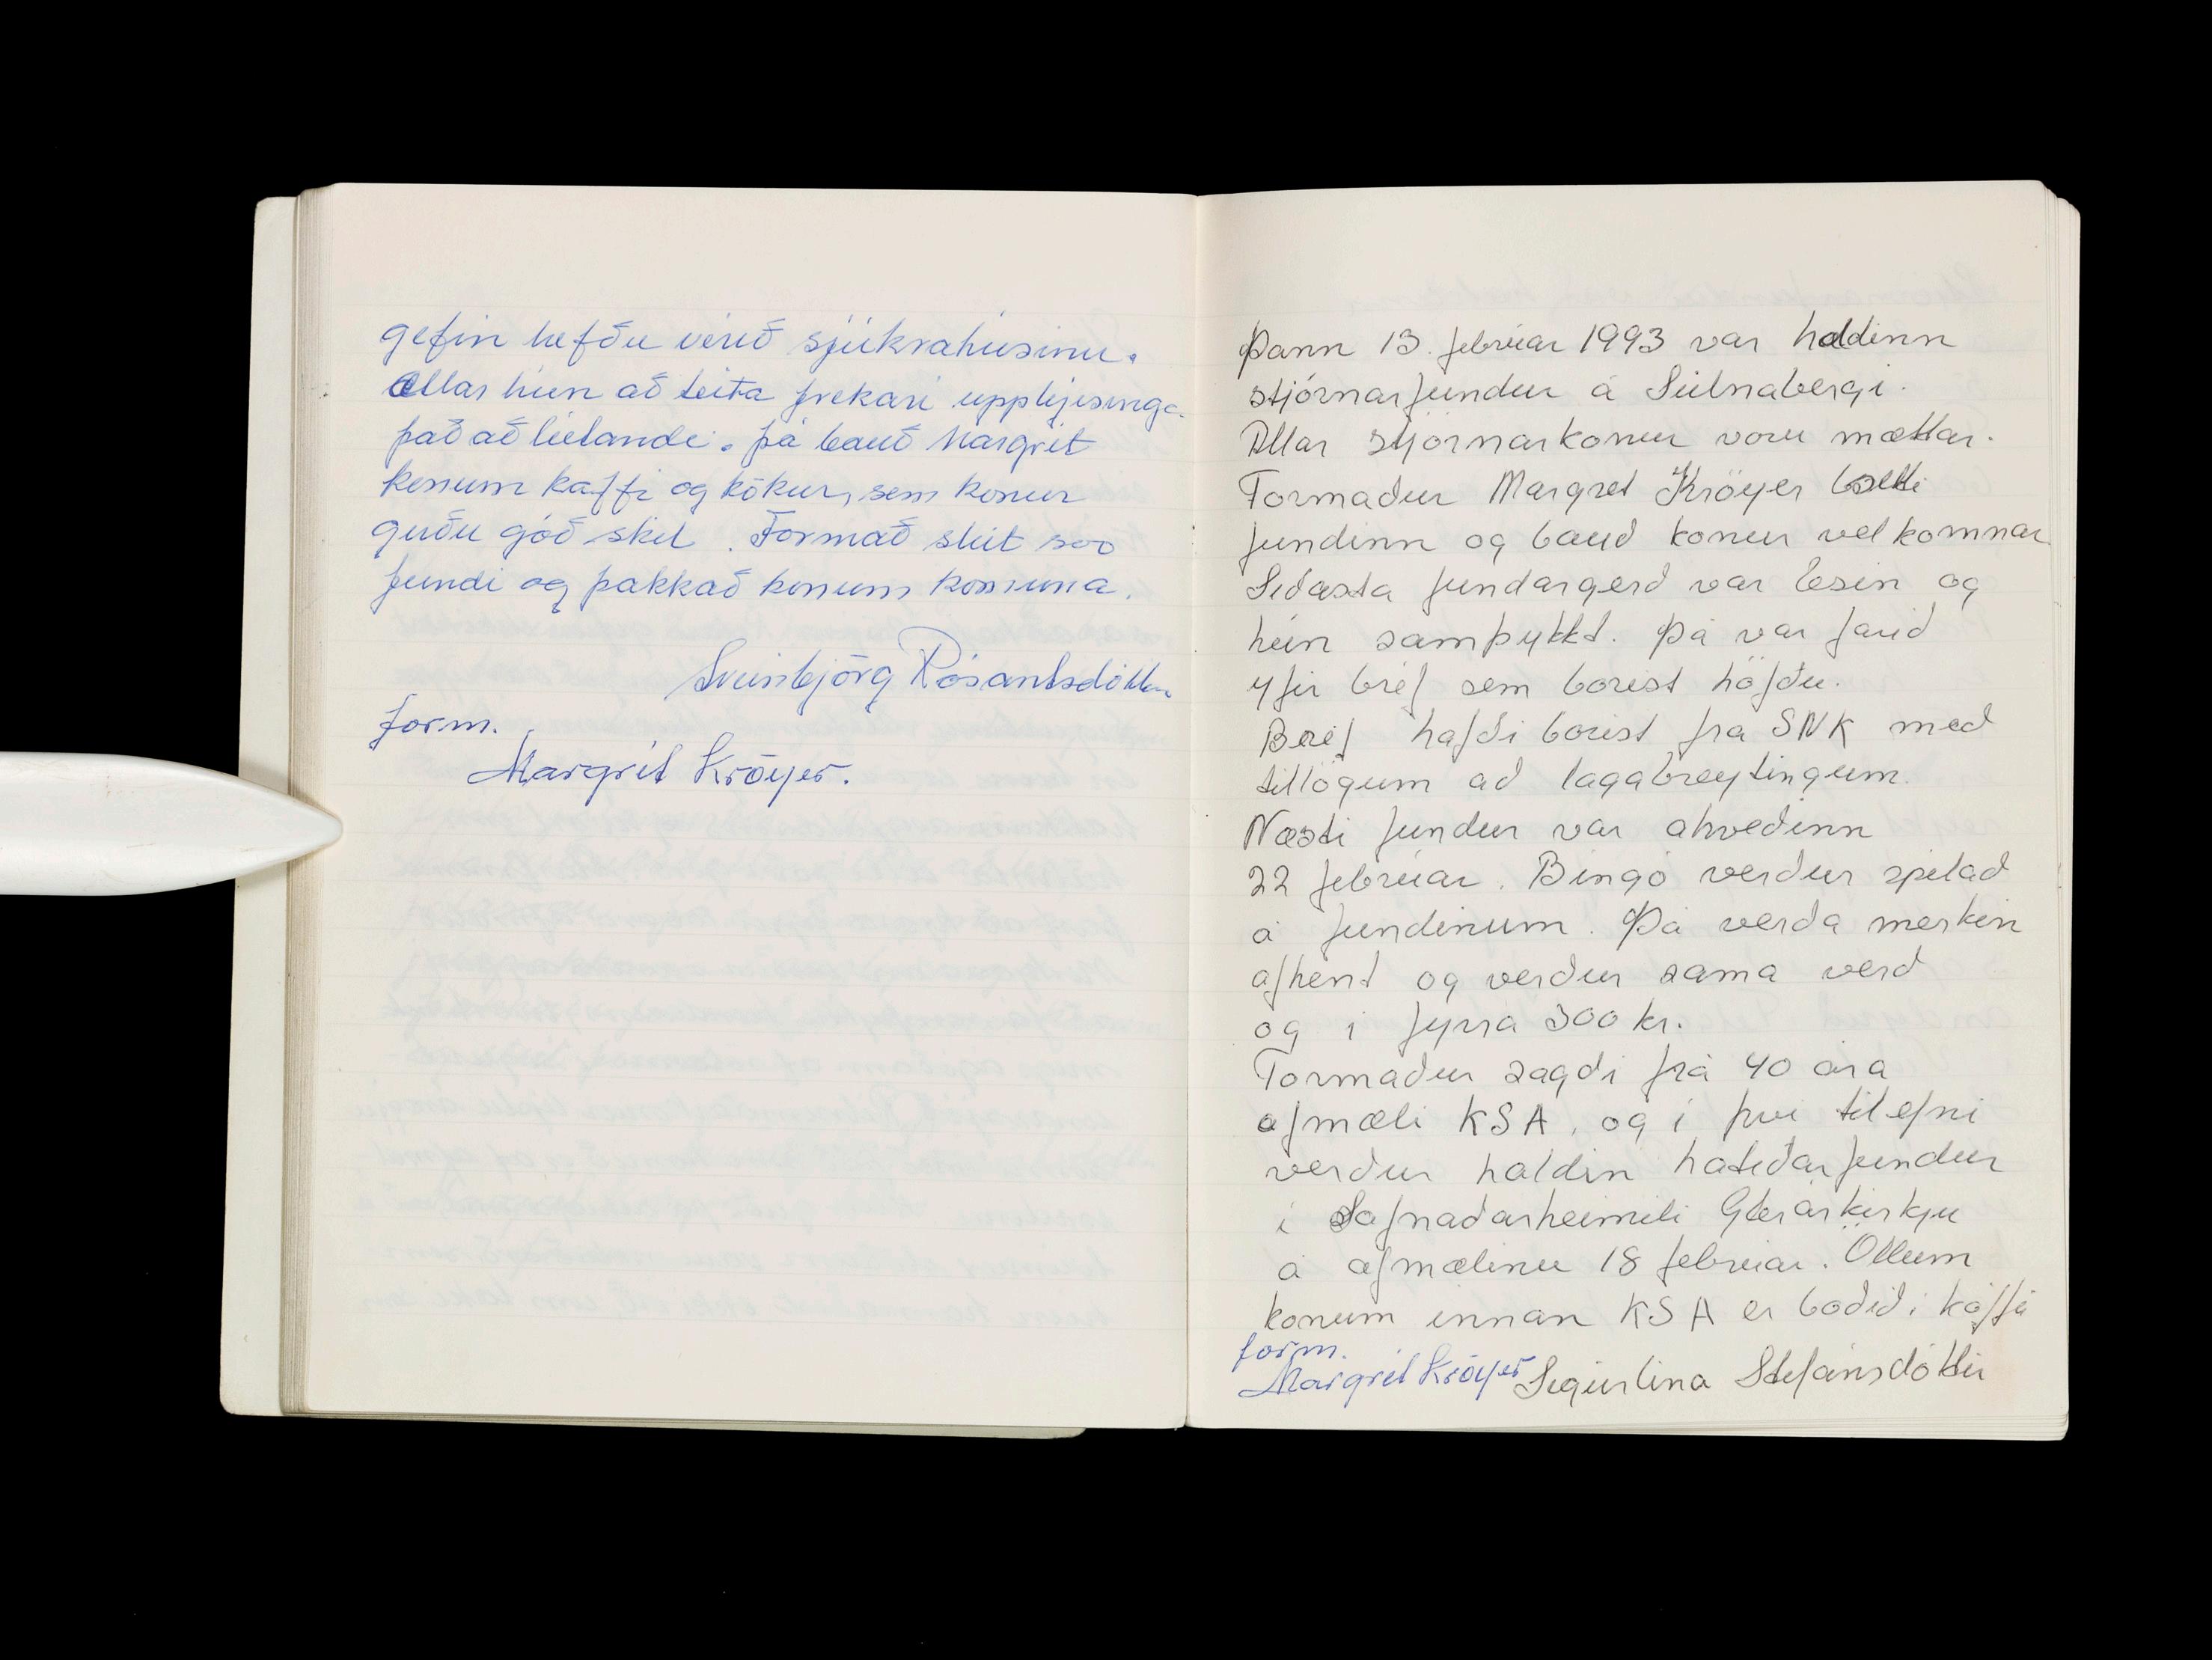 gefin hefðu verið sjúkrahúsinu.
Ællar hún að leita frekari upplýsinga
það að lútandi. þá bauð Margrét
konum kaffi og kökur, sem konur
gerðu góð skil. Formað sleit svo
fundi og þakkað konum komuna.
Sveinbjörg Rósantsdóttir
form.
Margrét Kröyer.
Þann 13. febrúar 1993 var haldinn
stjórnarfundur á Súlnabergi.
Allar stjórnarkonur voru mættar.
Formaður Margret Kröyer setti
fundinn og bauð konur velkomnar
Síðasta fundargerð var lesin og
hún samþykkt. Þá var farið
yfir bréf sem borist höfðu.
Bréf hafði borist fra SNK með
tillögum að lagabreytingum.
Næsti fundur var ahveðinn
22 febrúar. Bingó verður spilað
á fundinum. Þá verða merkin
afhent og verður sama verð
og i fyrra 300 kr.
Formaður sagði frá 40 ára
afmæli KSA, og í því tilefni
verður haldin hatiðarfundur
i Safnaðarheimili Glerárkirkju
á afmælinu 18 febrúar. Öllum
konum innan KSA er boðið í kaffi
form.
Margrét Kröyer Sigurlína Stefánsdóttir